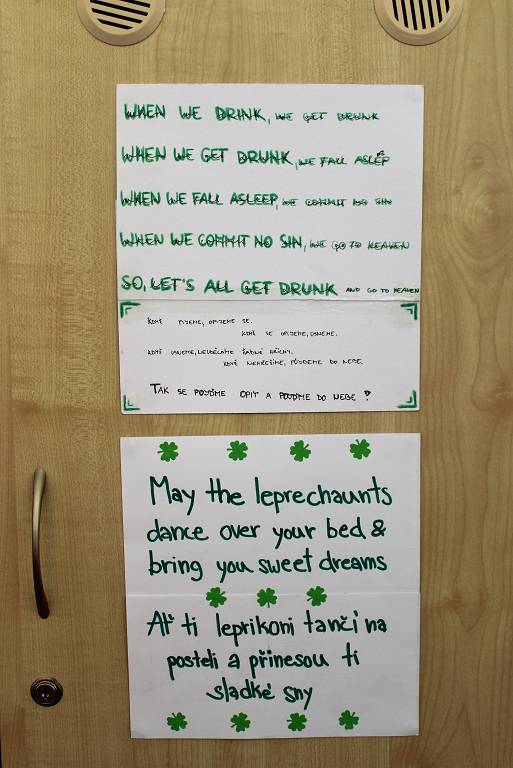 WHEN WE DRINK, WE GET DRUNK
WHEN WE GET DRUNK, WE FALL ASLEP
WHEN WE FALL ASLEEP, WE COMMIT NO SIN
WHEN WE COMMIT NO SIN, WE GO TO HEAVEN
SO, LET'S ALL GET DRUNK AND GO TO HEAVEN
KDYŽ PIJEME, OPIJEME SE.
KDYŽ SE OPIJEME, USNEME.
KDYŽ USNEME, NEUDĚLÁME ŽÁDNÉ HŘÍCHY.
KDYŽ NEHŘEŠÍME, PŮJDEME DO NEBE.
TAK SE POJĎME OPÍT A POJĎME DO NEBE!
May the leprechaunts
dance over your bed &
bring you sweet dreams
Ať ti leprikoni tančí na
posteli a přinesou ti
sladké sny